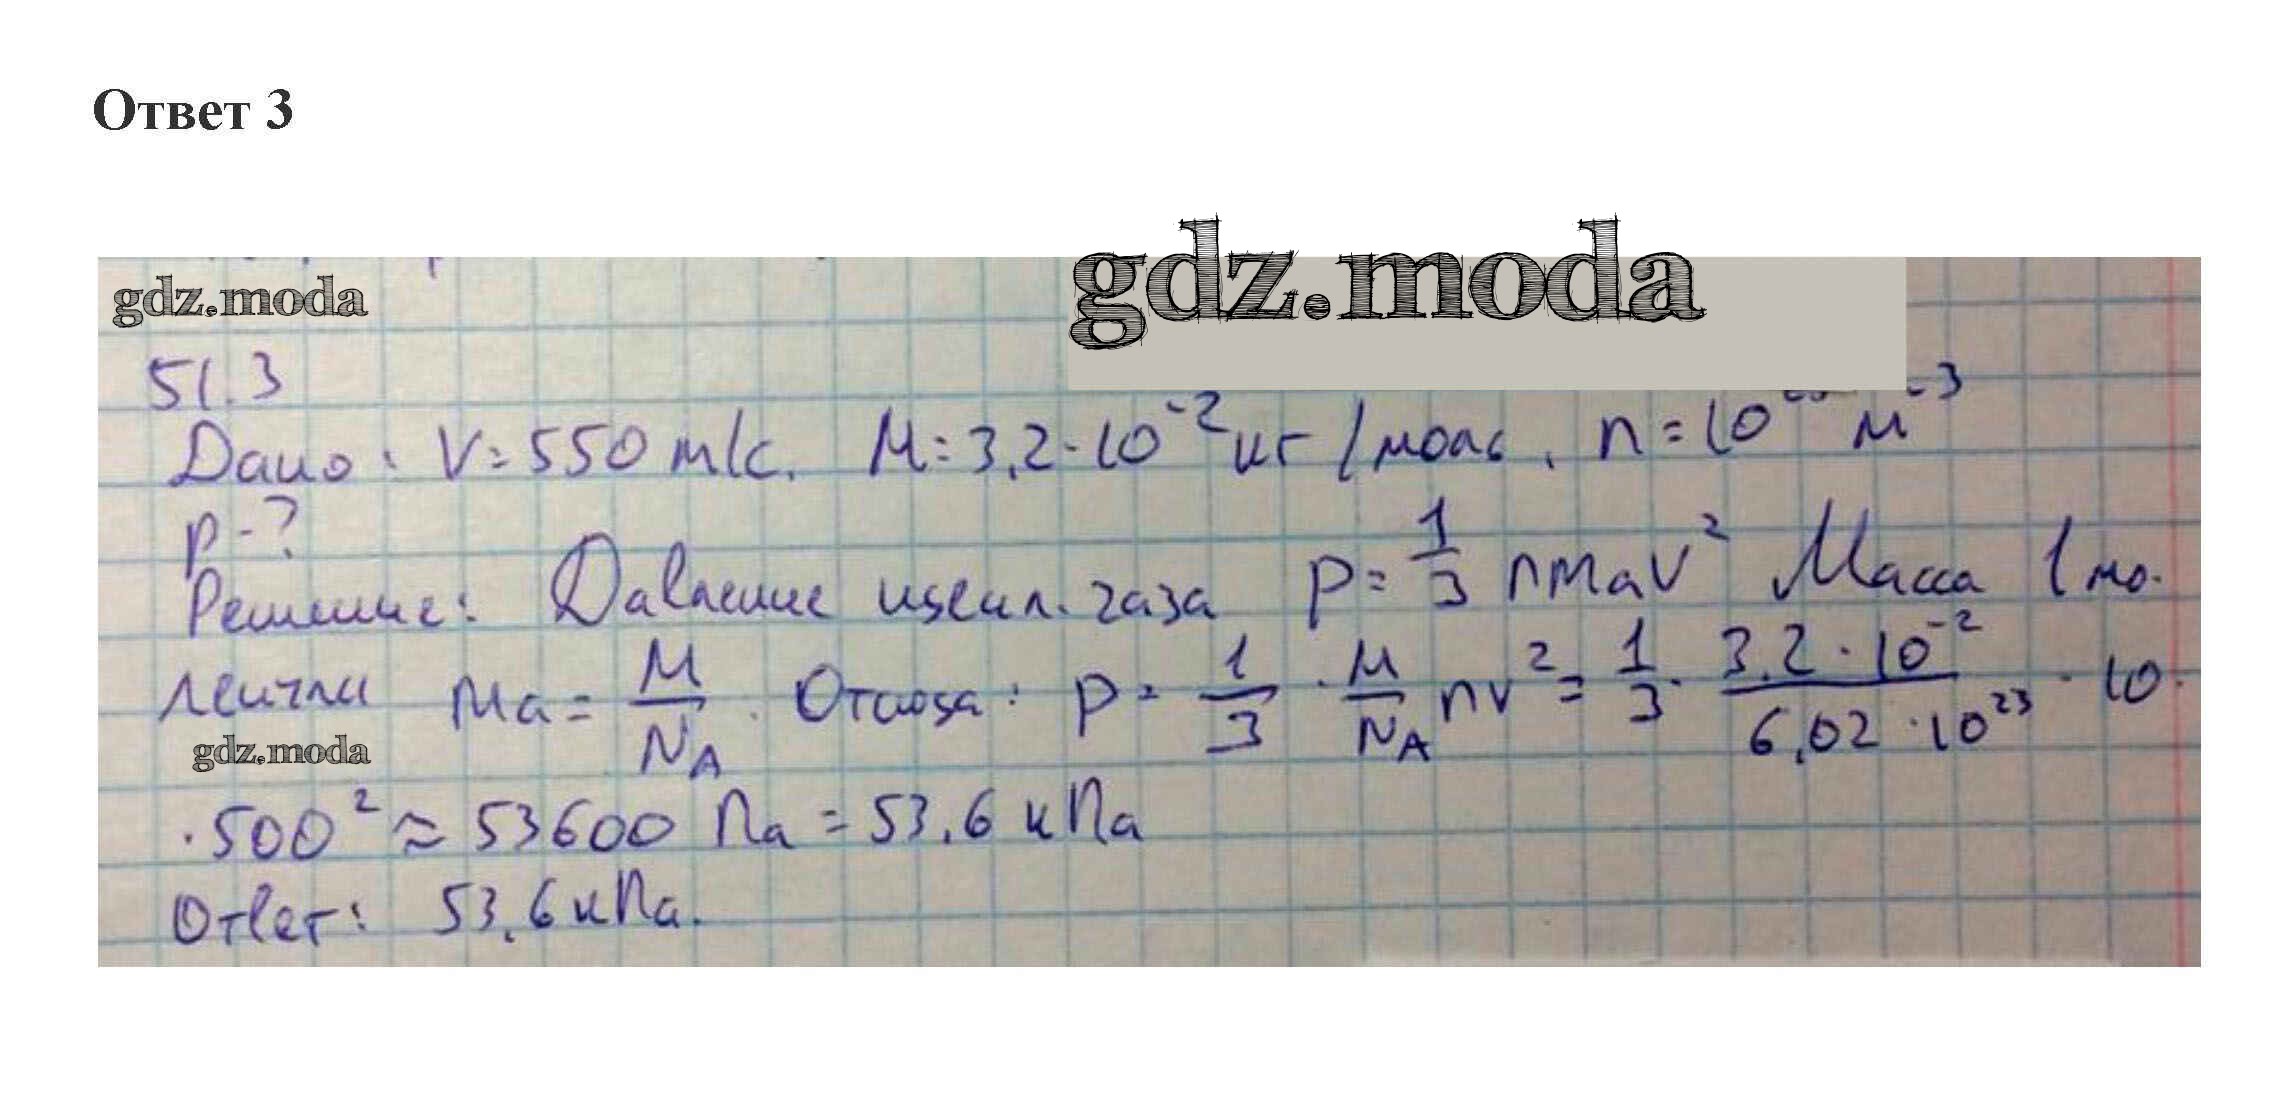 Ответ 3
gdz.moda
gdz.moda
51.3
Дано: V=550 м/с. M=3,2·10⁻² кг/моль, n=10 м⁻³
p-?
Решение: Давление идеал. газа p=1/3 nmav² Масса 1 мо-
лекулы ma=M/NA. Отсюда: p=1/3 · M/NA nv²=1/3 · 3,2·10⁻²/6,02·10²³ · 10.
gdz.moda
·500²≈53600 Па=53,6 кПа
Ответ: 53,6 кПа.